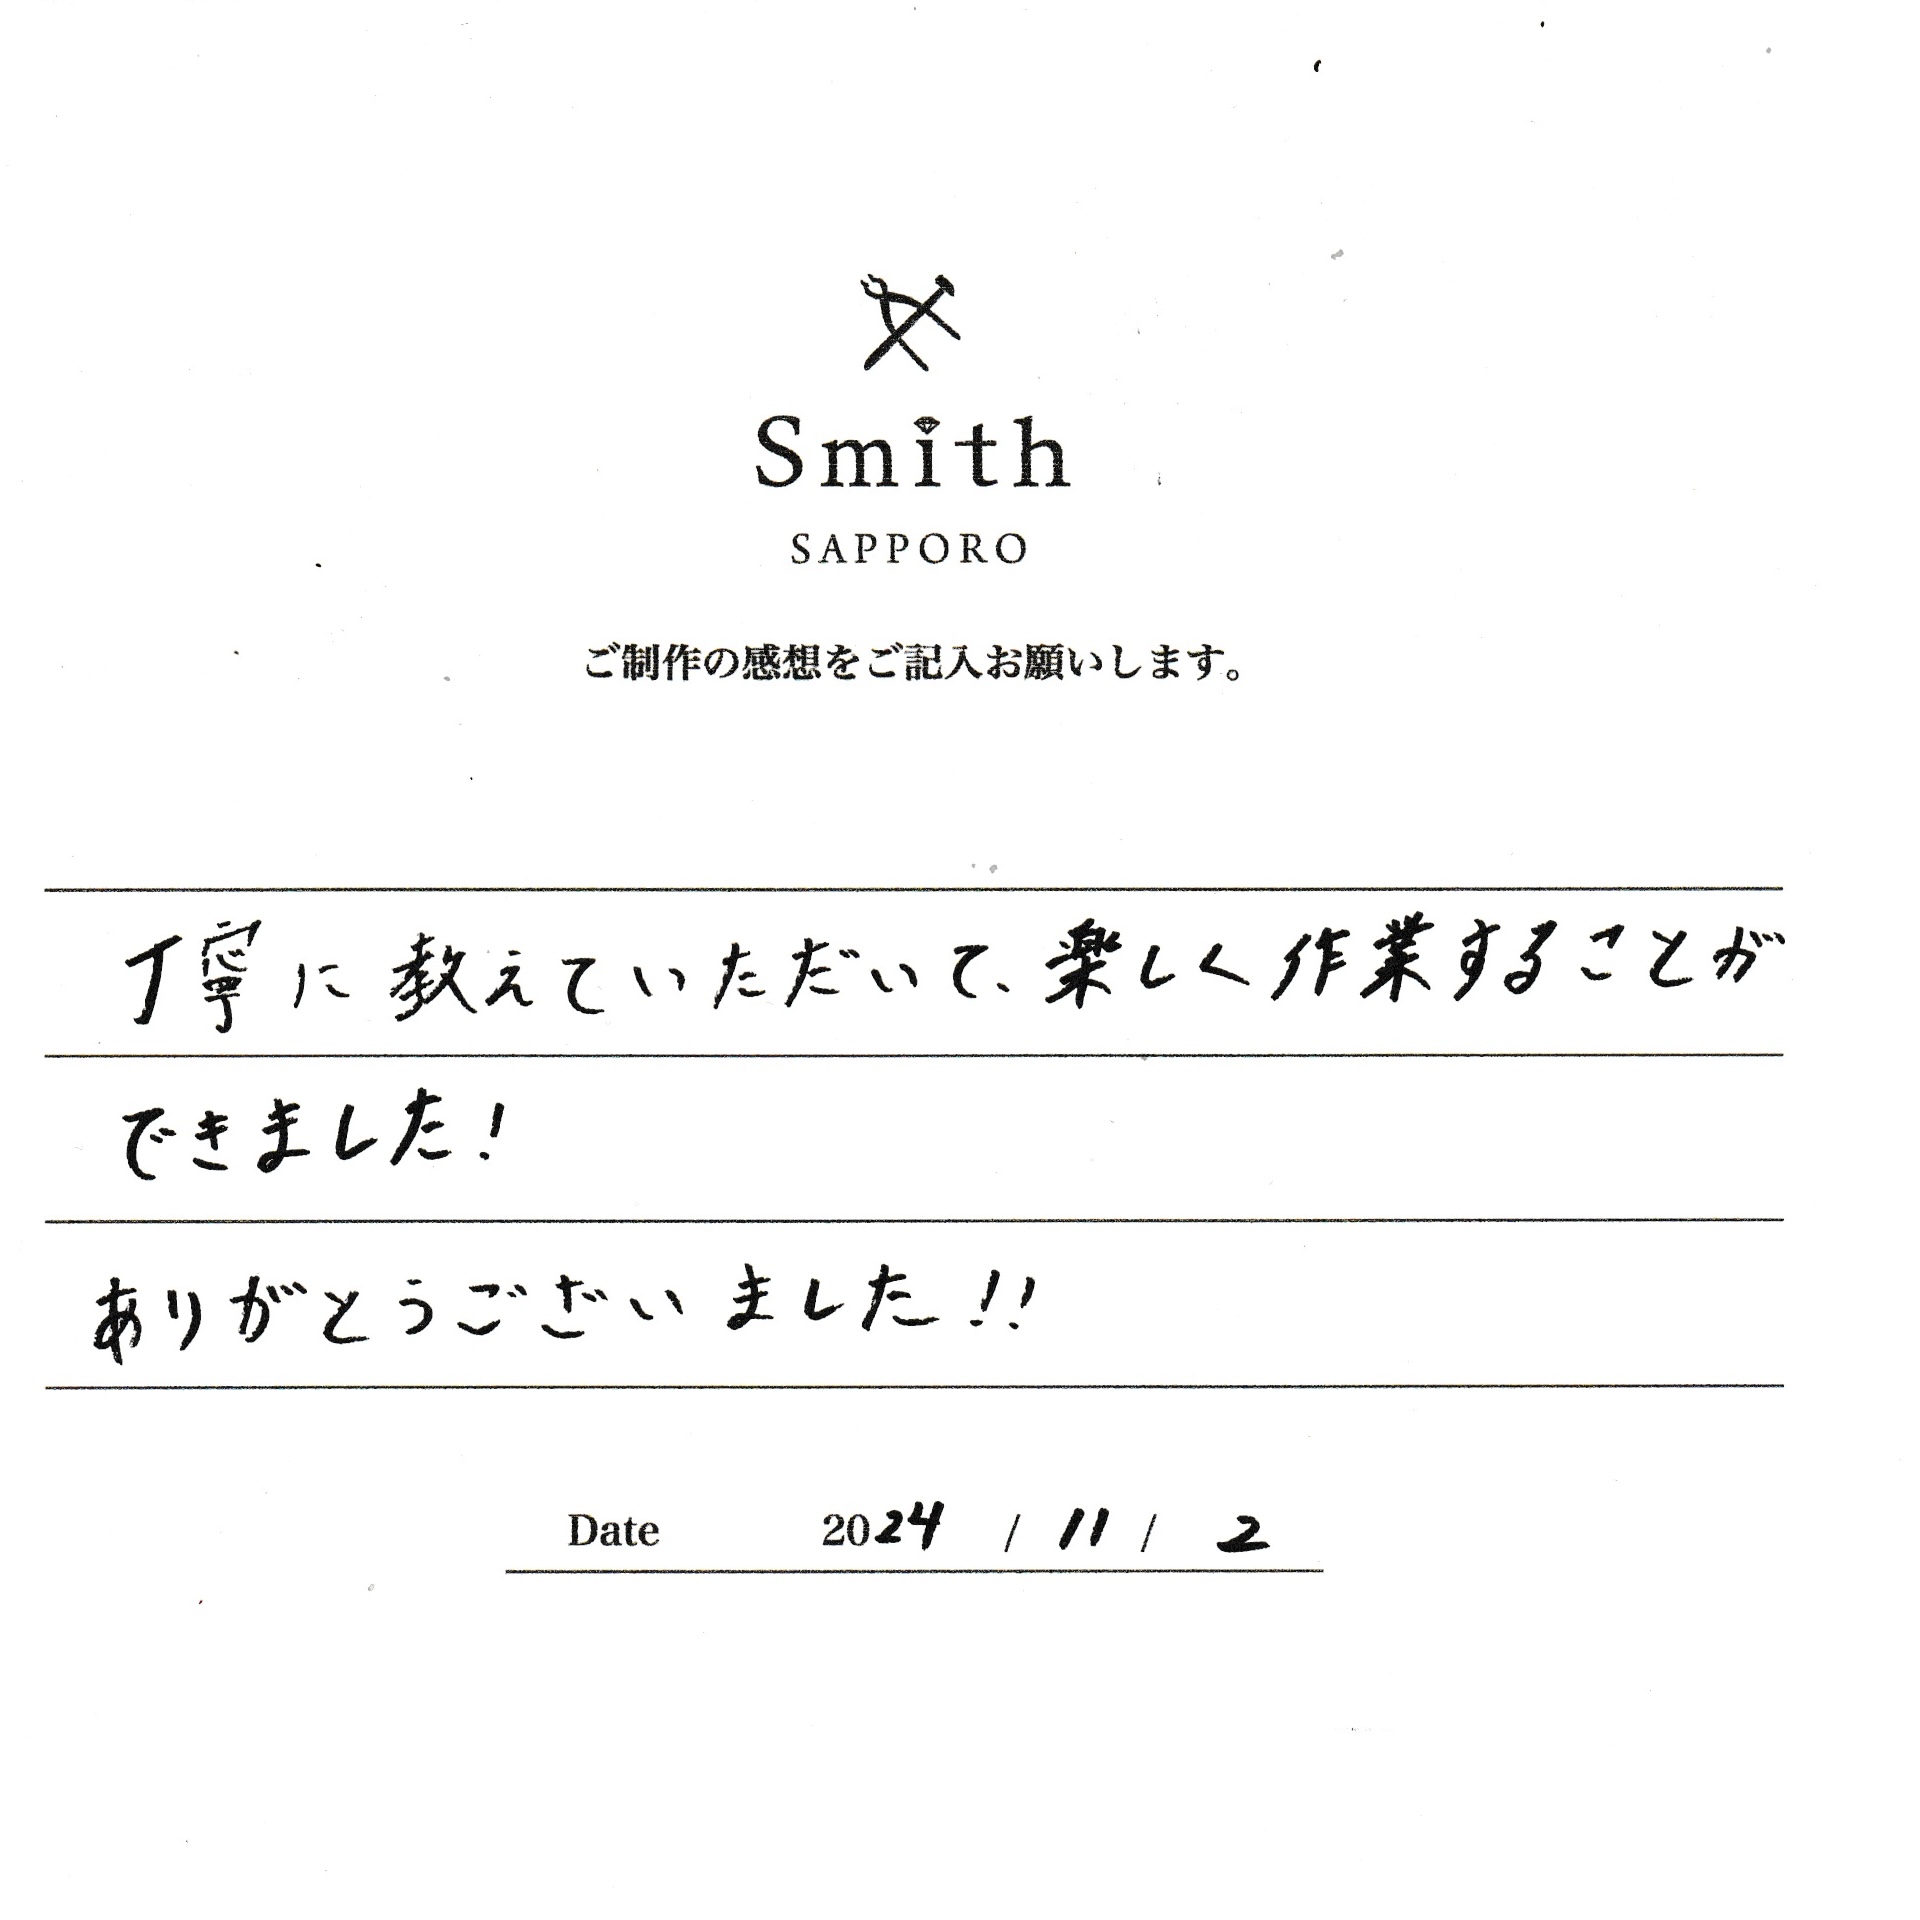 Smith
SAPPORO
ご制作の感想をご記入お願いします。
丁寧に教えていただいて、楽しく作業することが
できました!
ありがとうございました!!
Date 2024 / 11 / 2